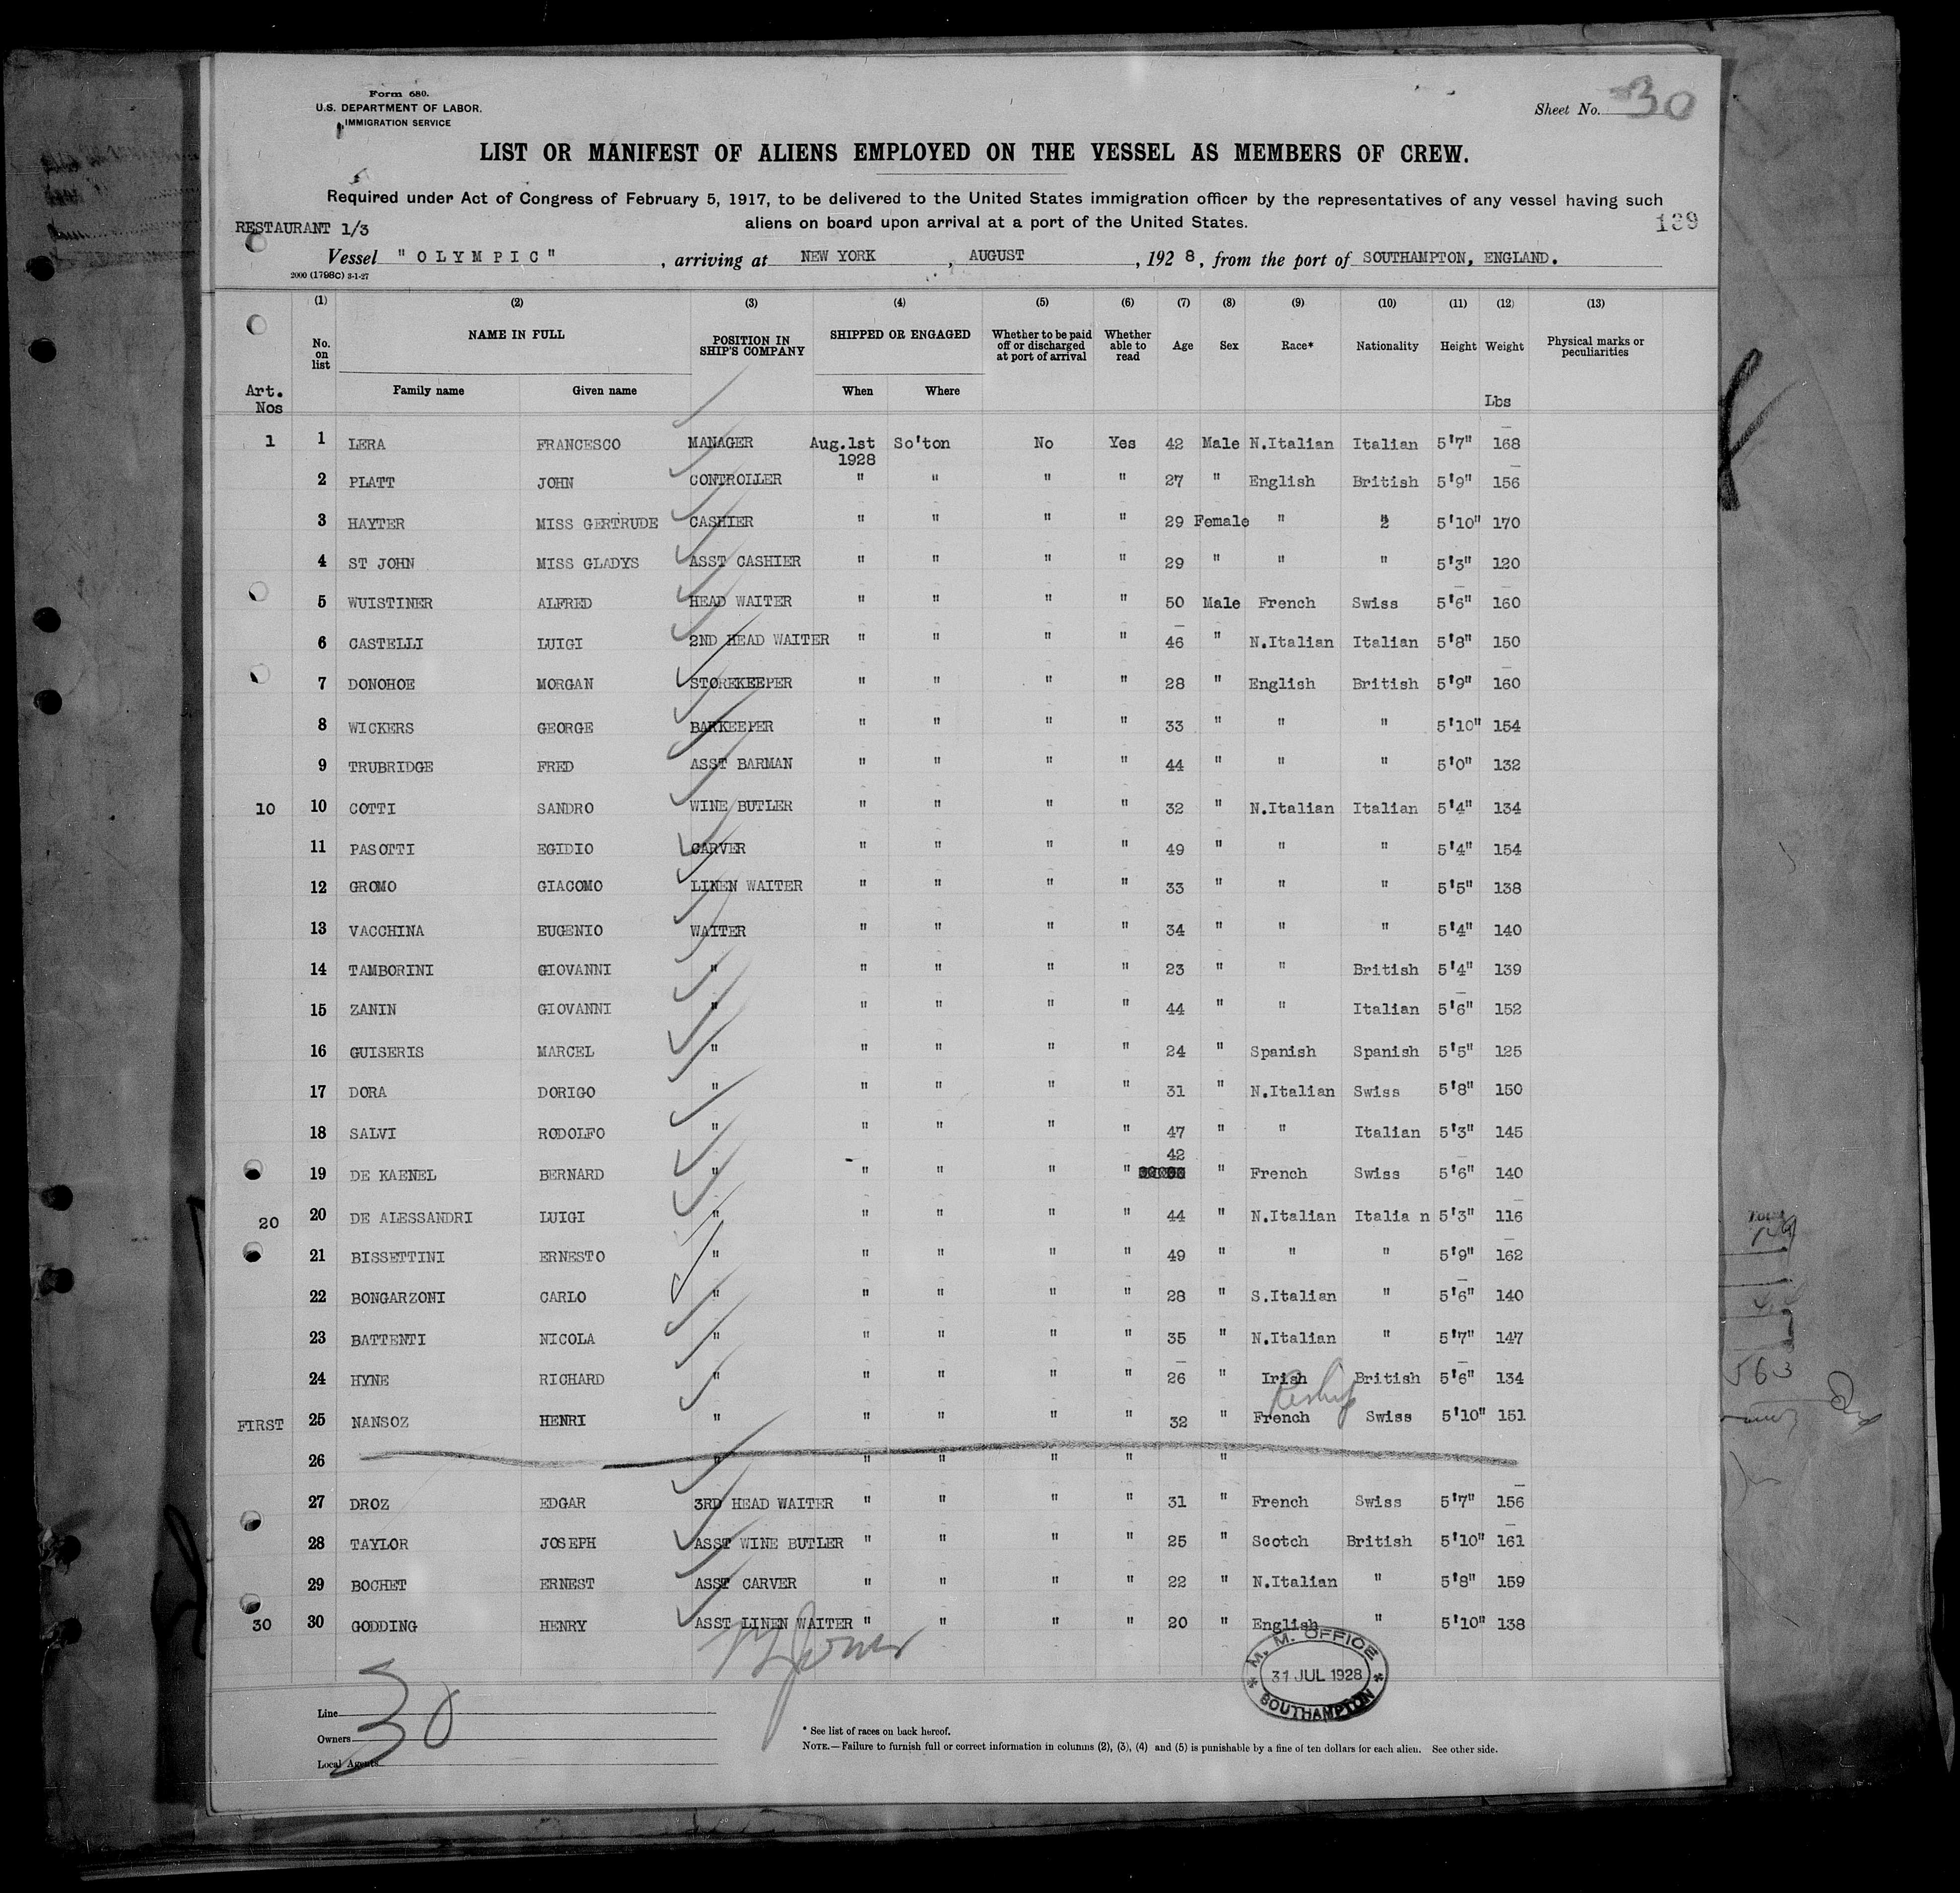 Form 680.
U.S. DEPARTMENT OF LABOR.
IMMIGRATION SERVICE
Sheet No. 30
LIST OR MANIFEST OF ALIENS EMPLOYED ON THE VESSEL AS MEMBERS OF CREW.
Required under Act of Congress of February 5, 1917, to be delivered to the United States immigration officer by the representatives of any vessel having such
RESTAURANT 1/3 aliens on board upon arrival at a port of the United States. 139
Vessel "OLYMPIC", arriving at NEW YORK, AUGUST, 1928, from the port of SOUTHAMPTON, ENGLAND.
2000 (1798C) 3-1-27
(1) (2) (3) (4) (5) (6) (7) (8) (9) (10) (11) (12) (13)
No. on list NAME IN FULL POSITION IN SHIP'S COMPANY SHIPPED OR ENGAGED Whether to be paid off or discharged at port of arrival Whether able to read Age Sex Race* Nationality Height Weight Physical marks or peculiarities
Art. Nos Family name Given name When Where Lbs
1 1 LERA FRANCESCO MANAGER Aug.1st 1928 So'ton No Yes 42 Male N.Italian Italian 5'7" 168
2 PLATT JOHN CONTROLLER " " " " 27 " English British 5'9" 156
3 HAYTER MISS GERTRUDE CASHIER " " " " 29 Female " " 5'10" 170
4 ST JOHN MISS GLADYS ASST CASHIER " " " " 29 " " " 5'3" 120
5 WUISTINER ALFRED HEAD WAITER " " " " 50 Male French Swiss 5'6" 160
6 CASTELLI LUIGI 2ND HEAD WAITER " " " " 46 " N.Italian Italian 5'8" 150
7 DONOHOE MORGAN STOREKEEPER " " " " 28 " English British 5'9" 160
8 WICKERS GEORGE BARKEEPER " " " " 33 " " " 5'10" 154
9 TRUBRIDGE FRED ASST BARMAN " " " " 44 " " " 5'0" 132
10 10 COTTI SANDRO WINE BUTLER " " " " 32 " N.Italian Italian 5'4" 134
11 PASOTTI EGIDIO CARVER " " " " 49 " " " 5'4" 154
12 GROMO GIACOMO LINEN WAITER " " " " 33 " " " 5'5" 138
13 VACCHINA EUGENIO WAITER " " " " 34 " " " 5'4" 140
14 TAMBORINI GIOVANNI " " " " " 23 " " British 5'4" 139
15 ZANIN GIOVANNI " " " " " 44 " " Italian 5'6" 152
16 GUISERIS MARCEL " " " " " 24 " Spanish Spanish 5'5" 125
17 DORA DORIGO " " " " " 31 " N.Italian Swiss 5'8" 150
18 SALVI RODOLFO " " " " " 47 " " Italian 5'3" 145
19 DE KAENEL BERNARD " " " " " 42 " French Swiss 5'6" 140
20 20 DE ALESSANDRI LUIGI " " " " " 44 " N.Italian Italia n 5'3" 116
21 BISSETTINI ERNESTO " " " " " 49 " " " 5'9" 162
22 BONGARZONI CARLO " " " " " 28 " S.Italian " 5'6" 140
23 BATTENTI NICOLA " " " " " 35 " N.Italian " 5'7" 147
24 HYNE RICHARD " " " " " 26 " Irish British 5'6" 134
FIRST 25 NANSOZ HENRI " " " " " 32 " French Swiss 5'10" 151
26 " " " " " "
27 DROZ EDGAR 3RD HEAD WAITER " " " " 31 " French Swiss 5'7" 156
28 TAYLOR JOSEPH ASST WINE BUTLER " " " " 25 " Scotch British 5'10" 161
29 BOCHET ERNEST ASST CARVER " " " " 22 " N.Italian " 5'8" 159
30 30 GODDING HENRY ASST LINEN WAITER " " " " 20 " English " 5'10" 138
M. M. OFFICE
31 JUL 1928
SOUTHAMPTON
30
Line
Owners
Local Agents
* See list of races on back hereof.
NOTE.—Failure to furnish full or correct information in columns (2), (3), (4) and (5) is punishable by a fine of ten dollars for each alien. See other side.
563